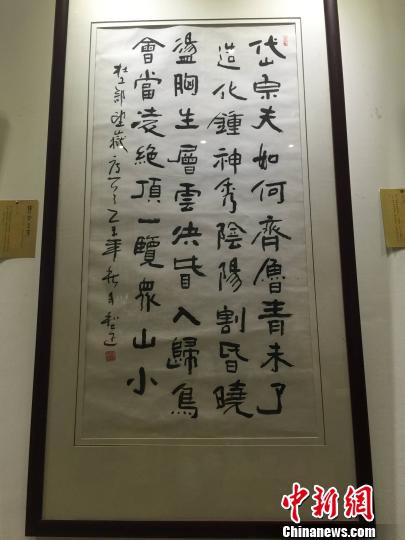 岱宗夫如何齊魯青未了
造化鍾神秀陰陽割昏曉
盪胸生層雲決眥入歸鳥
會當凌絕頂一覽眾山小
杜工部望嶽 乙未年秋月
中新網
Chinanews.com